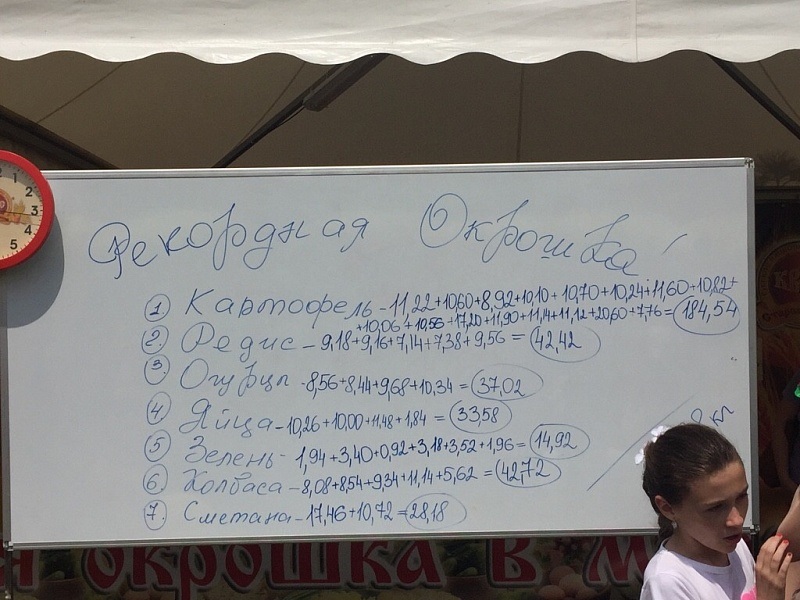 1 2 3 4 5
Рекордная Окрошка
1. Картофель - 11,22+10,60+8,92+10,10+10,70+10,24+11,60+10,82+
+10,06+10,56+17,20+11,90+11,14+11,12+20,60+7,76=184,54
2. Редис - 9,18+9,16+7,14+7,38+9,56=42,42
3. Огурцы - 8,56+8,44+9,68+10,34=37,02
4. Яйца - 10,26+10,00+11,48+1,84=33,58
5. Зелень - 1,94+3,40+0,92+3,18+3,52+1,96=14,92
6. Колбаса - 8,08+8,54+9,34+11,14+5,62=42,72
7. Сметана - 17,46+10,72=28,18
окрошка в м